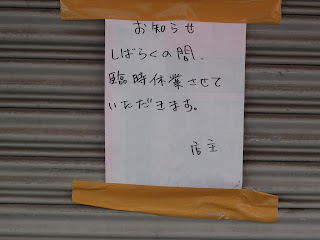 お知らせ
しばらくの間、
臨時休業させて
いただきます。
店主